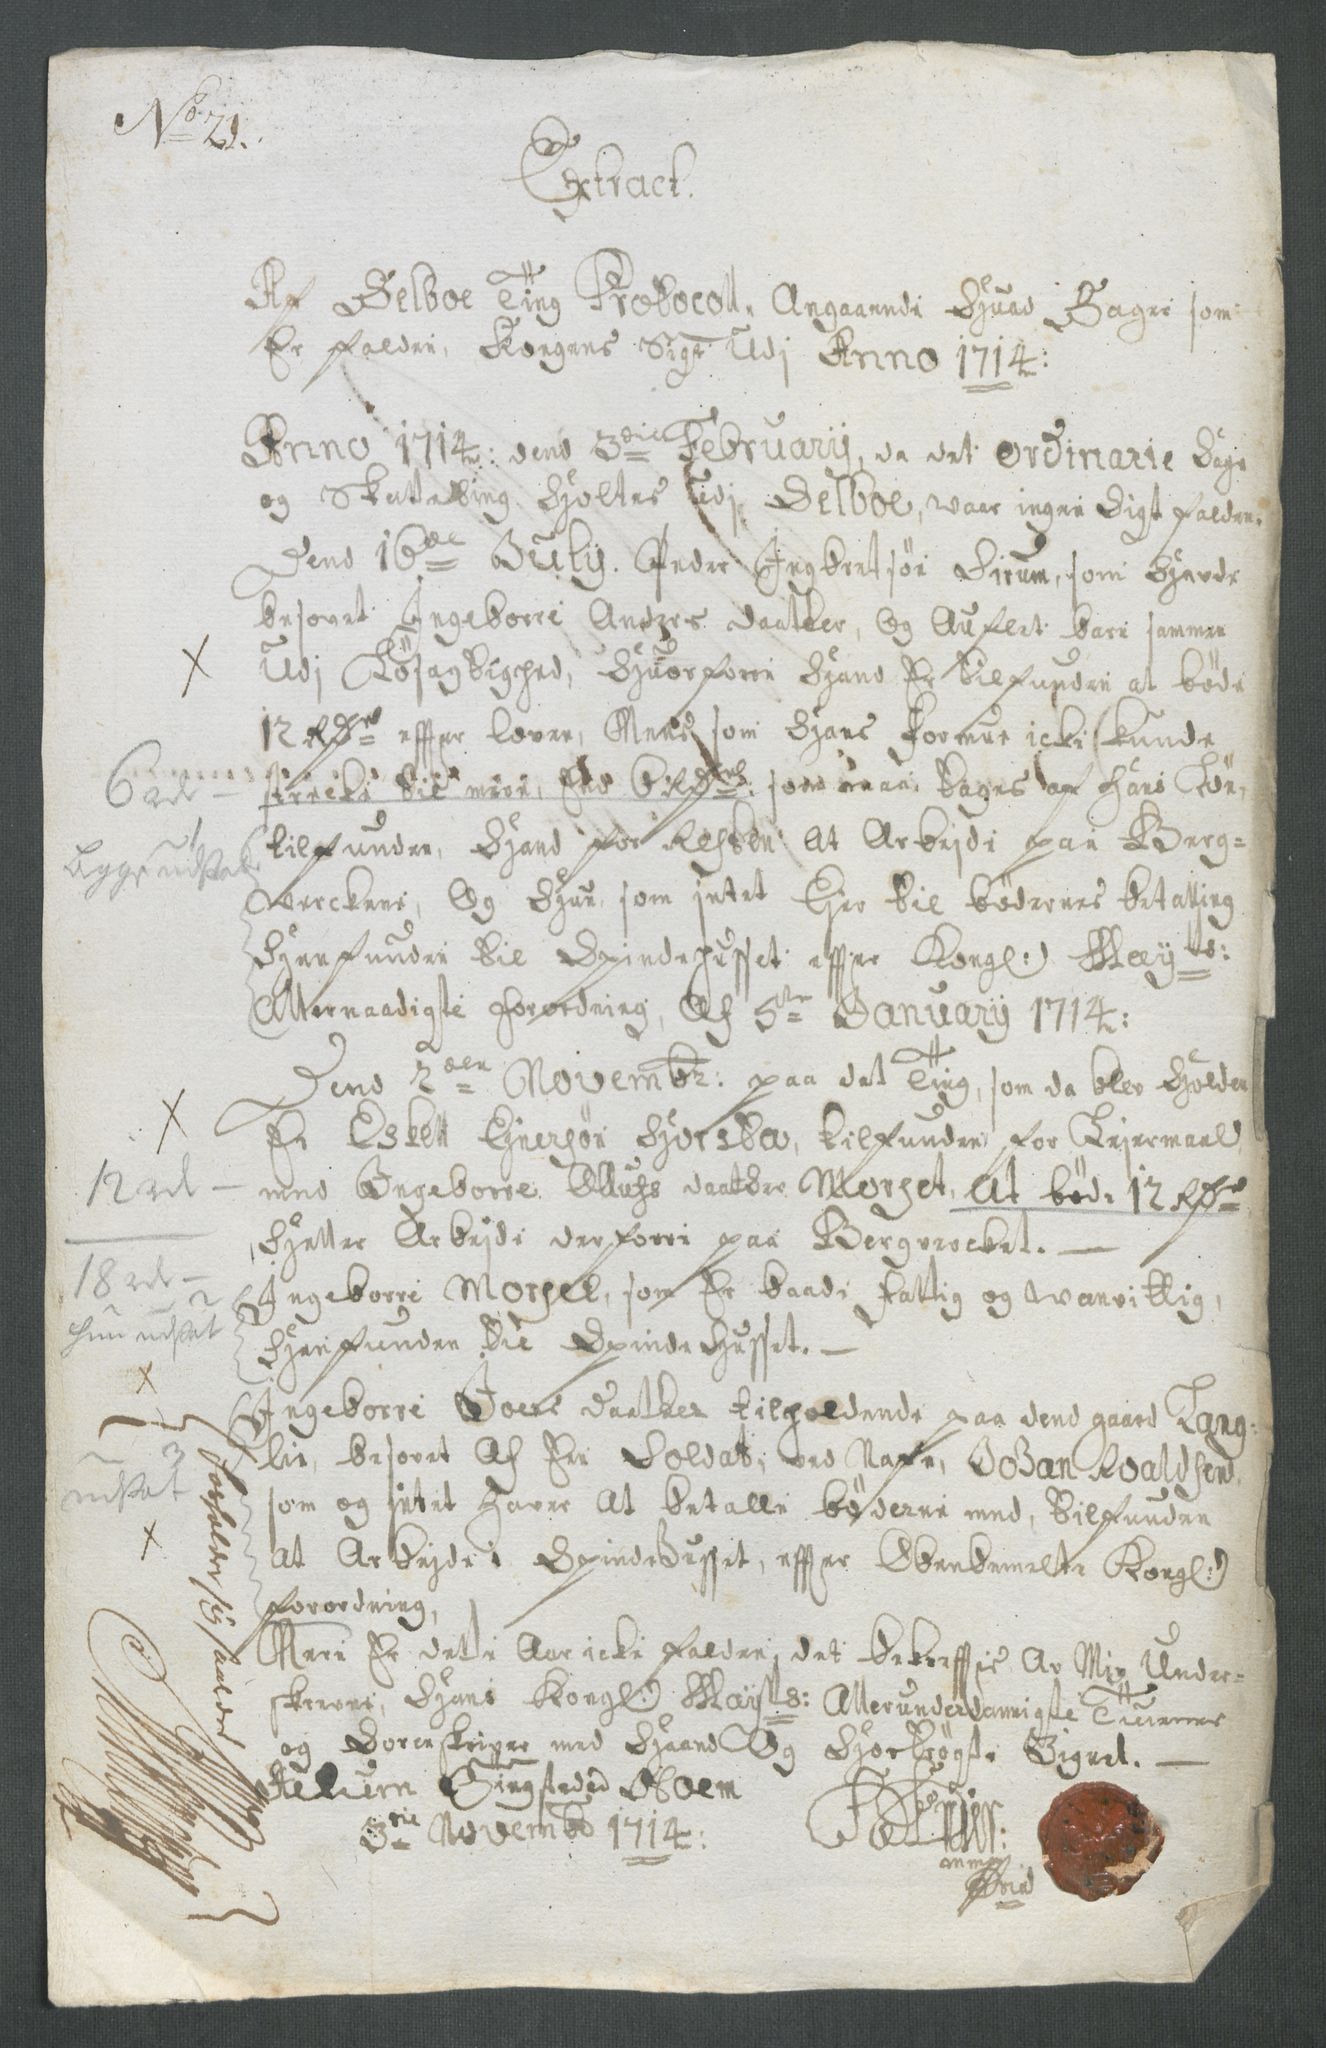 No 21.
Extract.
Af Selboe Ting Protocoll, Angaaende Hvad Sager som
Er falden, Kongens Sigt Udj Anno 1714:
Anno 1714: dend 3die Februarij, da det ordinarie Sage
og Skatteting Holtes udj Selboe, waar ingen Sigt falden.
Dend 16de Julij. Peder Ingbretsøn, som Hafde
besovet Ingeborre Anders daatter, Og Auflet barn sammen
Udj Løsagtighed, Hvorforre Hand Er tilfunden at bøde
12 Rdr efter loven, Mens som Hans formue icke kunde
strecke til mere, End 6 Rdr: som maa tages af hans Løn,
tilfunden, Hand for Resten at Arbejde paa Berg-
verckene, Og Hun, som intet Ejer til bødernes betalling
Henfunden til Spindehusset efter Kongl: Mayts:
Allernaadigste forordning, Af 5te Januarij 1714:
Dend 2den Novembr: paa det Ting, som da blev Holden
Er Eskell Ejnersøn, tilfunden for Lejermaal
med Ingeborre Ollufs daatter Morset, At bøde 12 Rdr
Heller Arbejde derforre paa Bergvercket. —
Ingeborre Morset, som Er baade fattig og wanvittig,
Henfunden til Spindehusset. —
Ingeborre Joens daatter tilholdende paa dend gaard Lang-
lie, besovet Af En Soldat, ved Nafn, Johan Roaldsen,
som og intet haver At betalle bøderne med, tilfunden
at Arbejde i Spindehusset, efter Ovenbemelte Kongl:
forordning,
Mere Er dette Aar icke falden, det bekreftis Av Min Under-
skrevne, Hans Kongl: Mayts: Allerunderdanigste Tiener
og Sorenskriver med Haand Og Hostrøgte Signet. —
Tingsted
3die Novembr 1714:
6 rd —
12 rd —
18 rd —
hun udsat
udsat